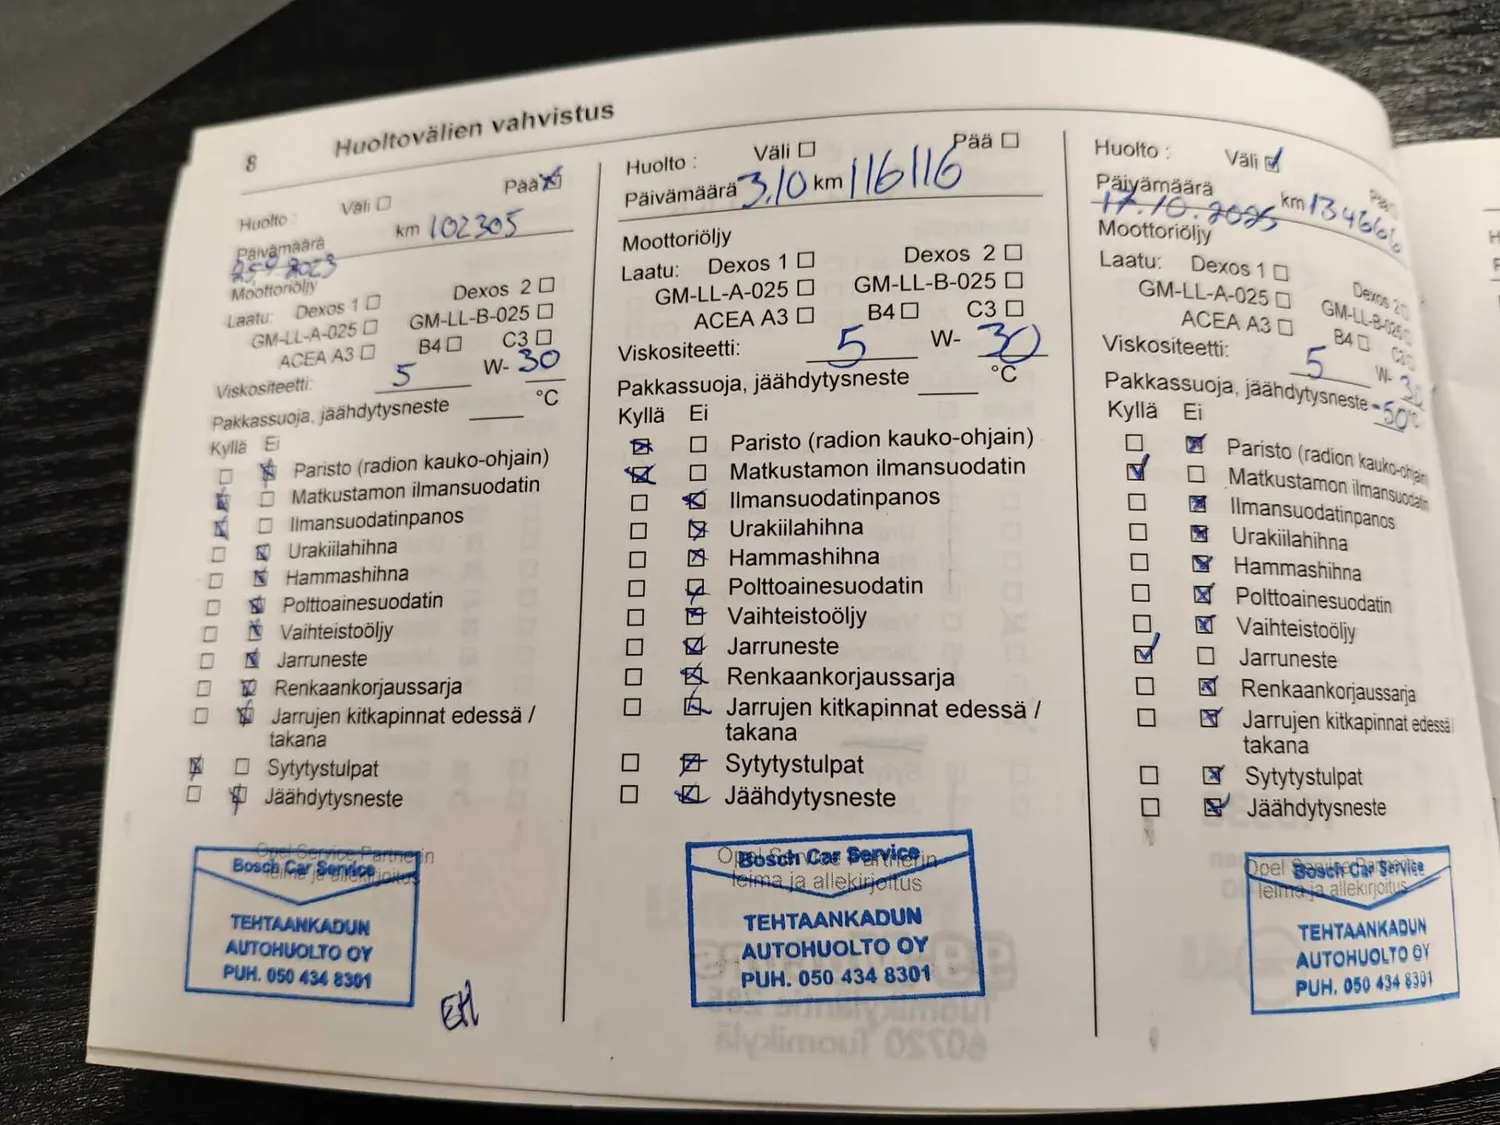 8 Huoltovälien vahvistus
Huolto : Väli ☐ Pää ☒
Päivämäärä km 102305
25.9 2023
Moottoriöljy
Laatu: Dexos 1 ☐ Dexos 2 ☐
GM-LL-A-025 ☐ GM-LL-B-025 ☐
ACEA A3 ☐ B4 ☐ C3 ☐
Viskositeetti: 5 W- 30
Pakkassuoja, jäähdytysneste °C
Kyllä Ei
☐ ☒ Paristo (radion kauko-ohjain)
☒ ☐ Matkustamon ilmansuodatin
☒ ☐ Ilmansuodatinpanos
☐ ☒ Urakiilahihna
☐ ☒ Hammashihna
☐ ☒ Polttoainesuodatin
☐ ☒ Vaihteistoöljy
☐ ☒ Jarruneste
☐ ☒ Renkaankorjaussarja
☐ ☒ Jarrujen kitkapinnat edessä /
takana
☒ ☐ Sytytystulpat
☐ ☒ Jäähdytysneste
Opel Service Partnerin
leima ja allekirjoitus
Bosch Car Service
TEHTAANKADUN
AUTOHUOLTO OY
PUH. 050 434 8301
EH
Huolto : Väli ☐ Pää ☐
Päivämäärä 3.10 km 116116
Moottoriöljy
Laatu: Dexos 1 ☐ Dexos 2 ☐
GM-LL-A-025 ☐ GM-LL-B-025 ☐
ACEA A3 ☐ B4 ☐ C3 ☐
Viskositeetti: 5 W- 30
Pakkassuoja, jäähdytysneste °C
Kyllä Ei
☒ ☐ Paristo (radion kauko-ohjain)
☒ ☐ Matkustamon ilmansuodatin
☐ ☒ Ilmansuodatinpanos
☐ ☒ Urakiilahihna
☐ ☒ Hammashihna
☐ ☒ Polttoainesuodatin
☐ ☒ Vaihteistoöljy
☐ ☒ Jarruneste
☐ ☒ Renkaankorjaussarja
☐ ☒ Jarrujen kitkapinnat edessä /
takana
☐ ☒ Sytytystulpat
☐ ☒ Jäähdytysneste
Opel Service Partnerin
leima ja allekirjoitus
Bosch Car Service
TEHTAANKADUN
AUTOHUOLTO OY
PUH. 050 434 8301
Huolto : Väli ☑ Pää ☐
Päivämäärä km 134666
17.10.2025
Moottoriöljy
Laatu: Dexos 1 ☐ Dexos 2 ☐
GM-LL-A-025 ☐ GM-LL-B-025 ☐
ACEA A3 ☐ B4 ☐ C3 ☐
Viskositeetti: 5 W- 30
Pakkassuoja, jäähdytysneste -50°C
Kyllä Ei
☐ ☒ Paristo (radion kauko-ohjain
☑ ☐ Matkustamon ilmansuodatin
☐ ☒ Ilmansuodatinpanos
☐ ☒ Urakiilahihna
☐ ☒ Hammashihna
☐ ☒ Polttoainesuodatin
☐ ☒ Vaihteistoöljy
☑ ☐ Jarruneste
☐ ☒ Renkaankorjaussarja
☐ ☒ Jarrujen kitkapinnat edessä /
takana
☐ ☒ Sytytystulpat
☐ ☒ Jäähdytysneste
Opel Service Partnerin
leima ja allekirjoitus
Bosch Car Service
TEHTAANKADUN
AUTOHUOLTO OY
PUH. 050 434 8301